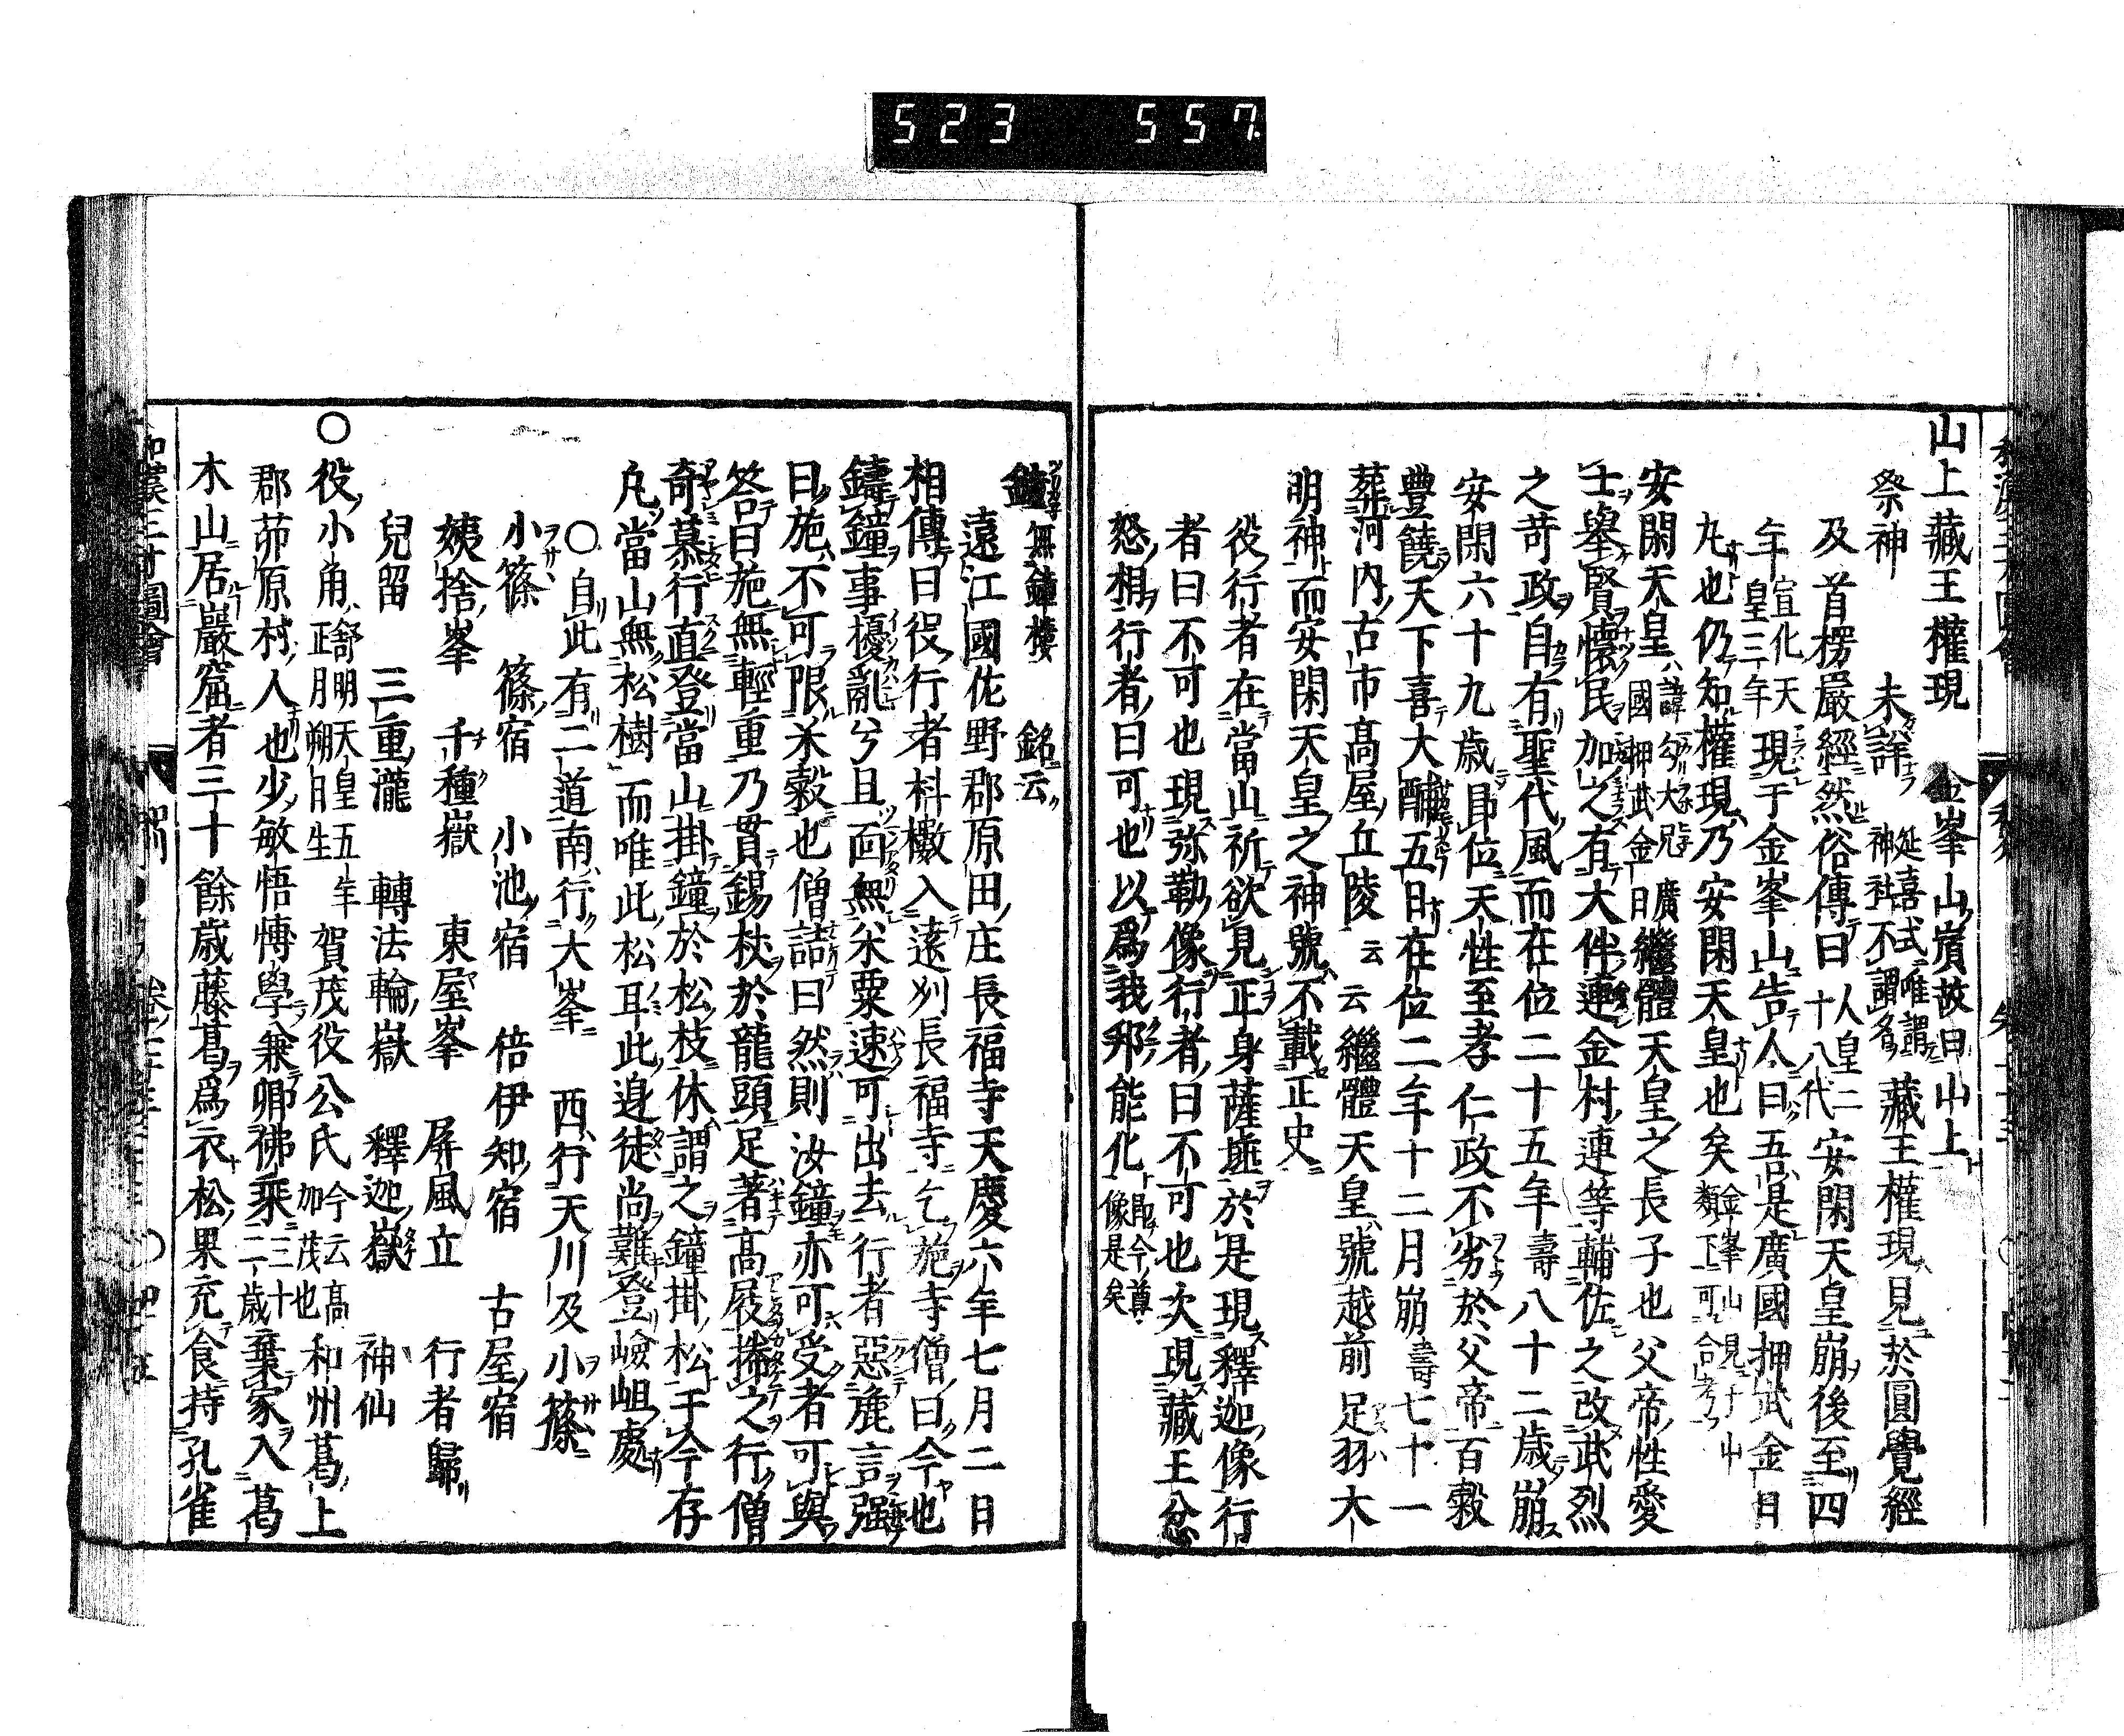 523 557
山上藏王權現 金峯山嶺故曰山上
祭神 未詳 延喜式唯謂神社不謂名 藏王權現見於圓覺經
及首楞嚴經然俗傳曰 人皇二十八代 安閑天皇崩後至四
年 宣化天皇三年 現于金峯山告人曰吾是廣國押武金日
丸也仍知權現乃安閑天皇也矣 金峯山見于山類下可合考
安閑天皇 諱勾大兄廣國押武金日 繼體天皇之長子也父帝性愛
士擧賢懷民加之有大伴連金村連等輔佐之改武烈
之苛政自有聖代風而在位二十五年壽八十二歳崩
安閑六十九歳卽位天性至孝仁政不劣於父帝百穀
豐饒天下喜大酺五日在位二年十二月崩 壽七十一
葬河内古市髙屋丘陵 云云 繼體天皇號越前足羽大
明神而安閑天皇之神號不載正史
役行者在當山祈欲見正身薩埵於是現釋迦像行
者曰不可也現弥勒像行者曰不可也次現藏王忿
怒相行者曰可也以爲我邦能化 卽今尊像是矣
鐘 無鐘樓 銘云
遠江國佐野郡原田庄長福寺天慶六年七月二日
相傳曰役行者料檄入遠刕長福寺乞施寺僧曰今也
鑄鐘事擾亂兮且面無米粟速可出去行者惡麁言强
曰施不可限米穀也僧詰曰然則汝鐘亦可受者可與
答曰施無輕重乃貫錫杖於龍頭足著髙屐捲之行僧
奇慕行直登當山掛鐘於松枝休謂之鐘掛松于今存
凡當山無松樹而唯此松耳此邊徒尚難登嶮岨處
〇自此有二道南行大峯 西行天川及小篠
小篠 篠宿 小池宿 倍伊知宿 古屋宿
姨捨峯 千種嶽 東屋峯 屏風立 行者歸
兒留 三重瀧 轉法輪嶽 釋迦嶽 神仙
〇役小角 舒明天皇五年正月朔日生 賀茂役公氏 今云髙加茂也 和州葛上
郡茆原村人也少敏悟博學兼㘅佛乘三十二歳棄家入葛
木山居巖窟者三十餘歳藤葛爲衣松果充食持孔雀
和漢三才圖會